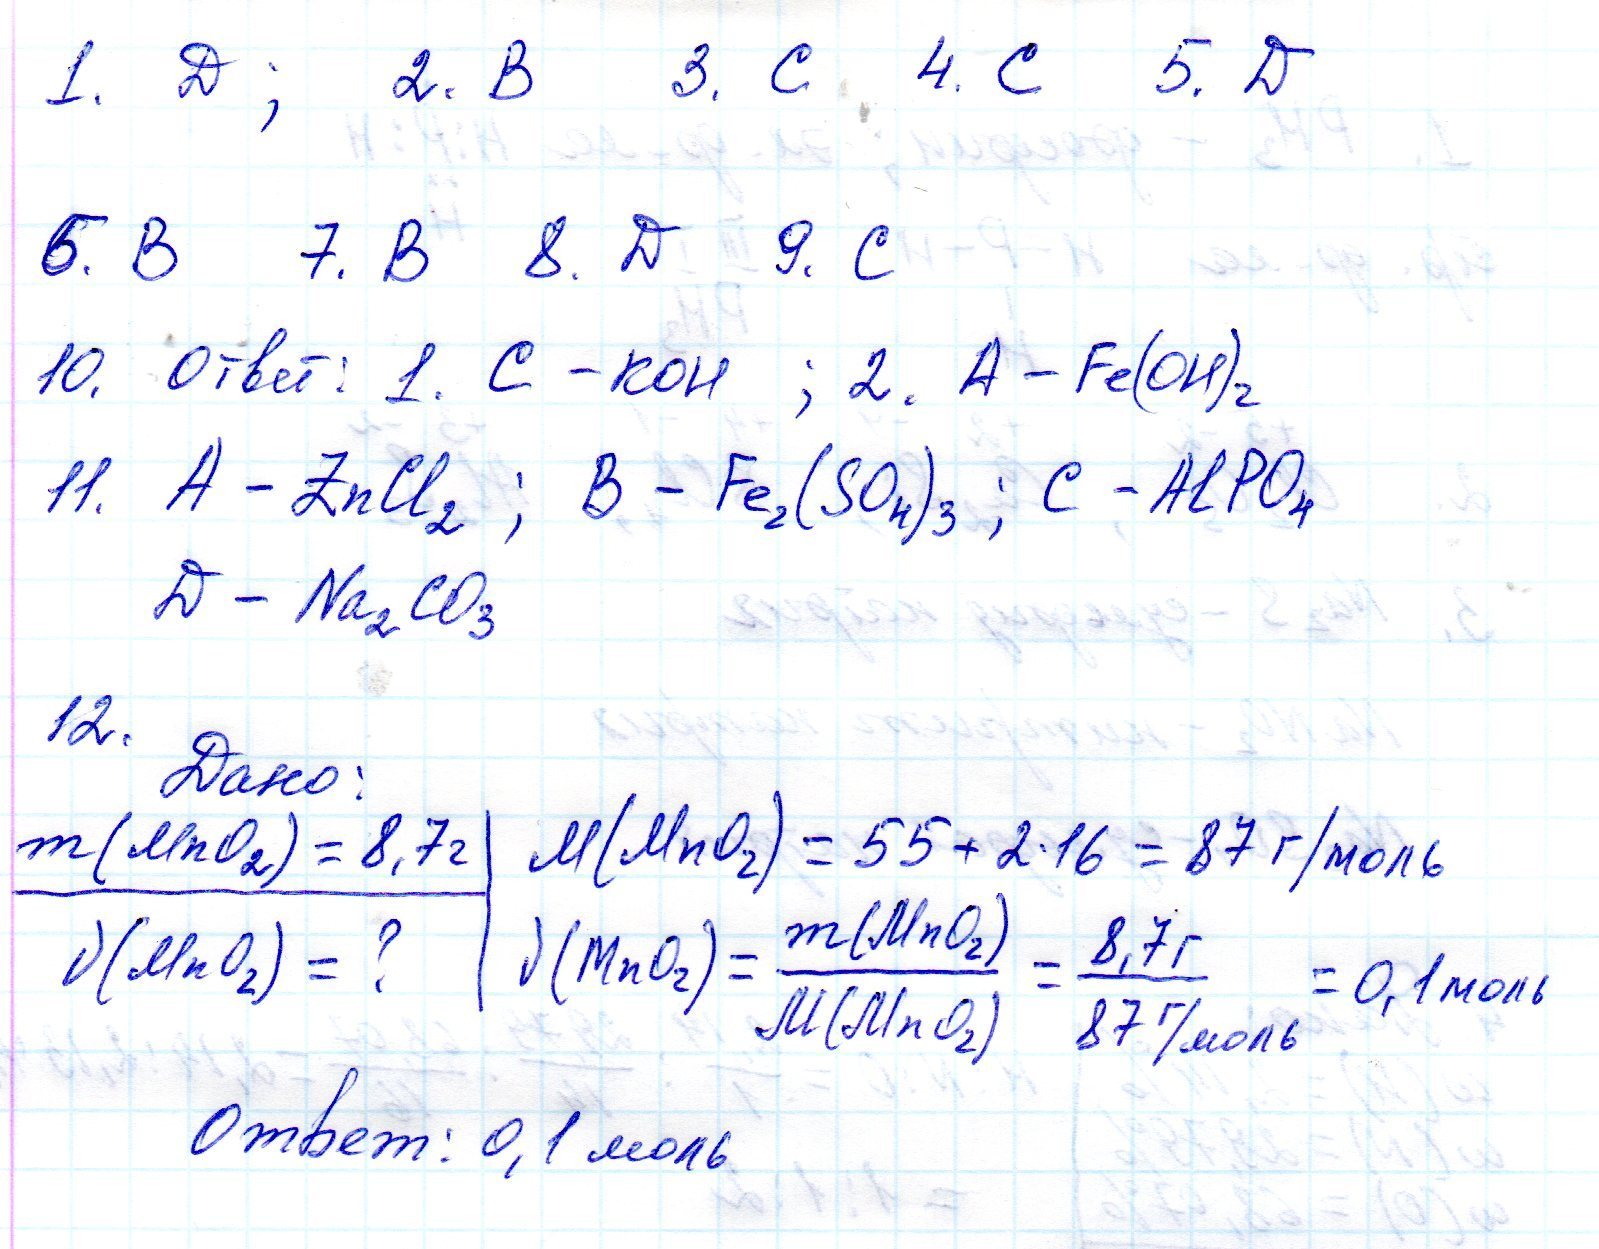 1. D; 2. B 3. C 4. C 5. D
6. B 7. B 8. D 9. C
10. Ответ: 1. C – KOH ; 2. A – Fe(OH)₂
11. A – ZnCl₂ ; B – Fe₂(SO₄)₃ ; C – AlPO₄
D – Na₂CO₃
12.
Дано:
m(MnO₂) = 8,7г | M(MnO₂) = 55 + 2·16 = 87 г/моль
ν(MnO₂) = ? | ν(MnO₂) = m(MnO₂) / M(MnO₂) = 8,7г / 87 г/моль = 0,1 моль
Ответ: 0,1 моль